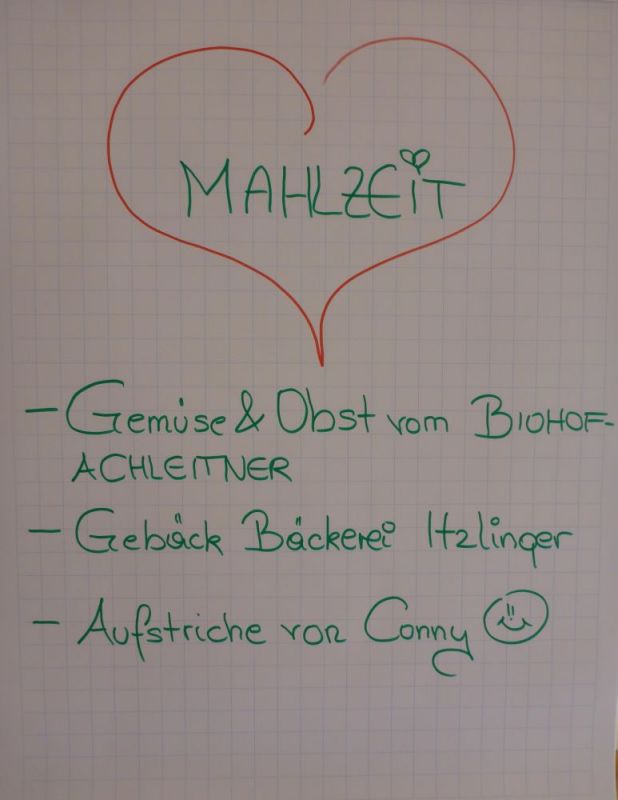 MAHLZEiT
- Gemüse & Obst vom BIOHOF-
ACHLEITNER
- Gebäck Bäckerei Itzlinger
- Aufstriche von Conny